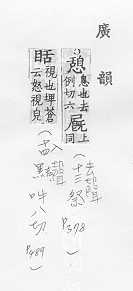 廣韻
憩 息也去例切六 上同
視也埤蒼云怒視皃
(去聲 十三祭 P378)
(入聲 十四黠 呼八切 P489)